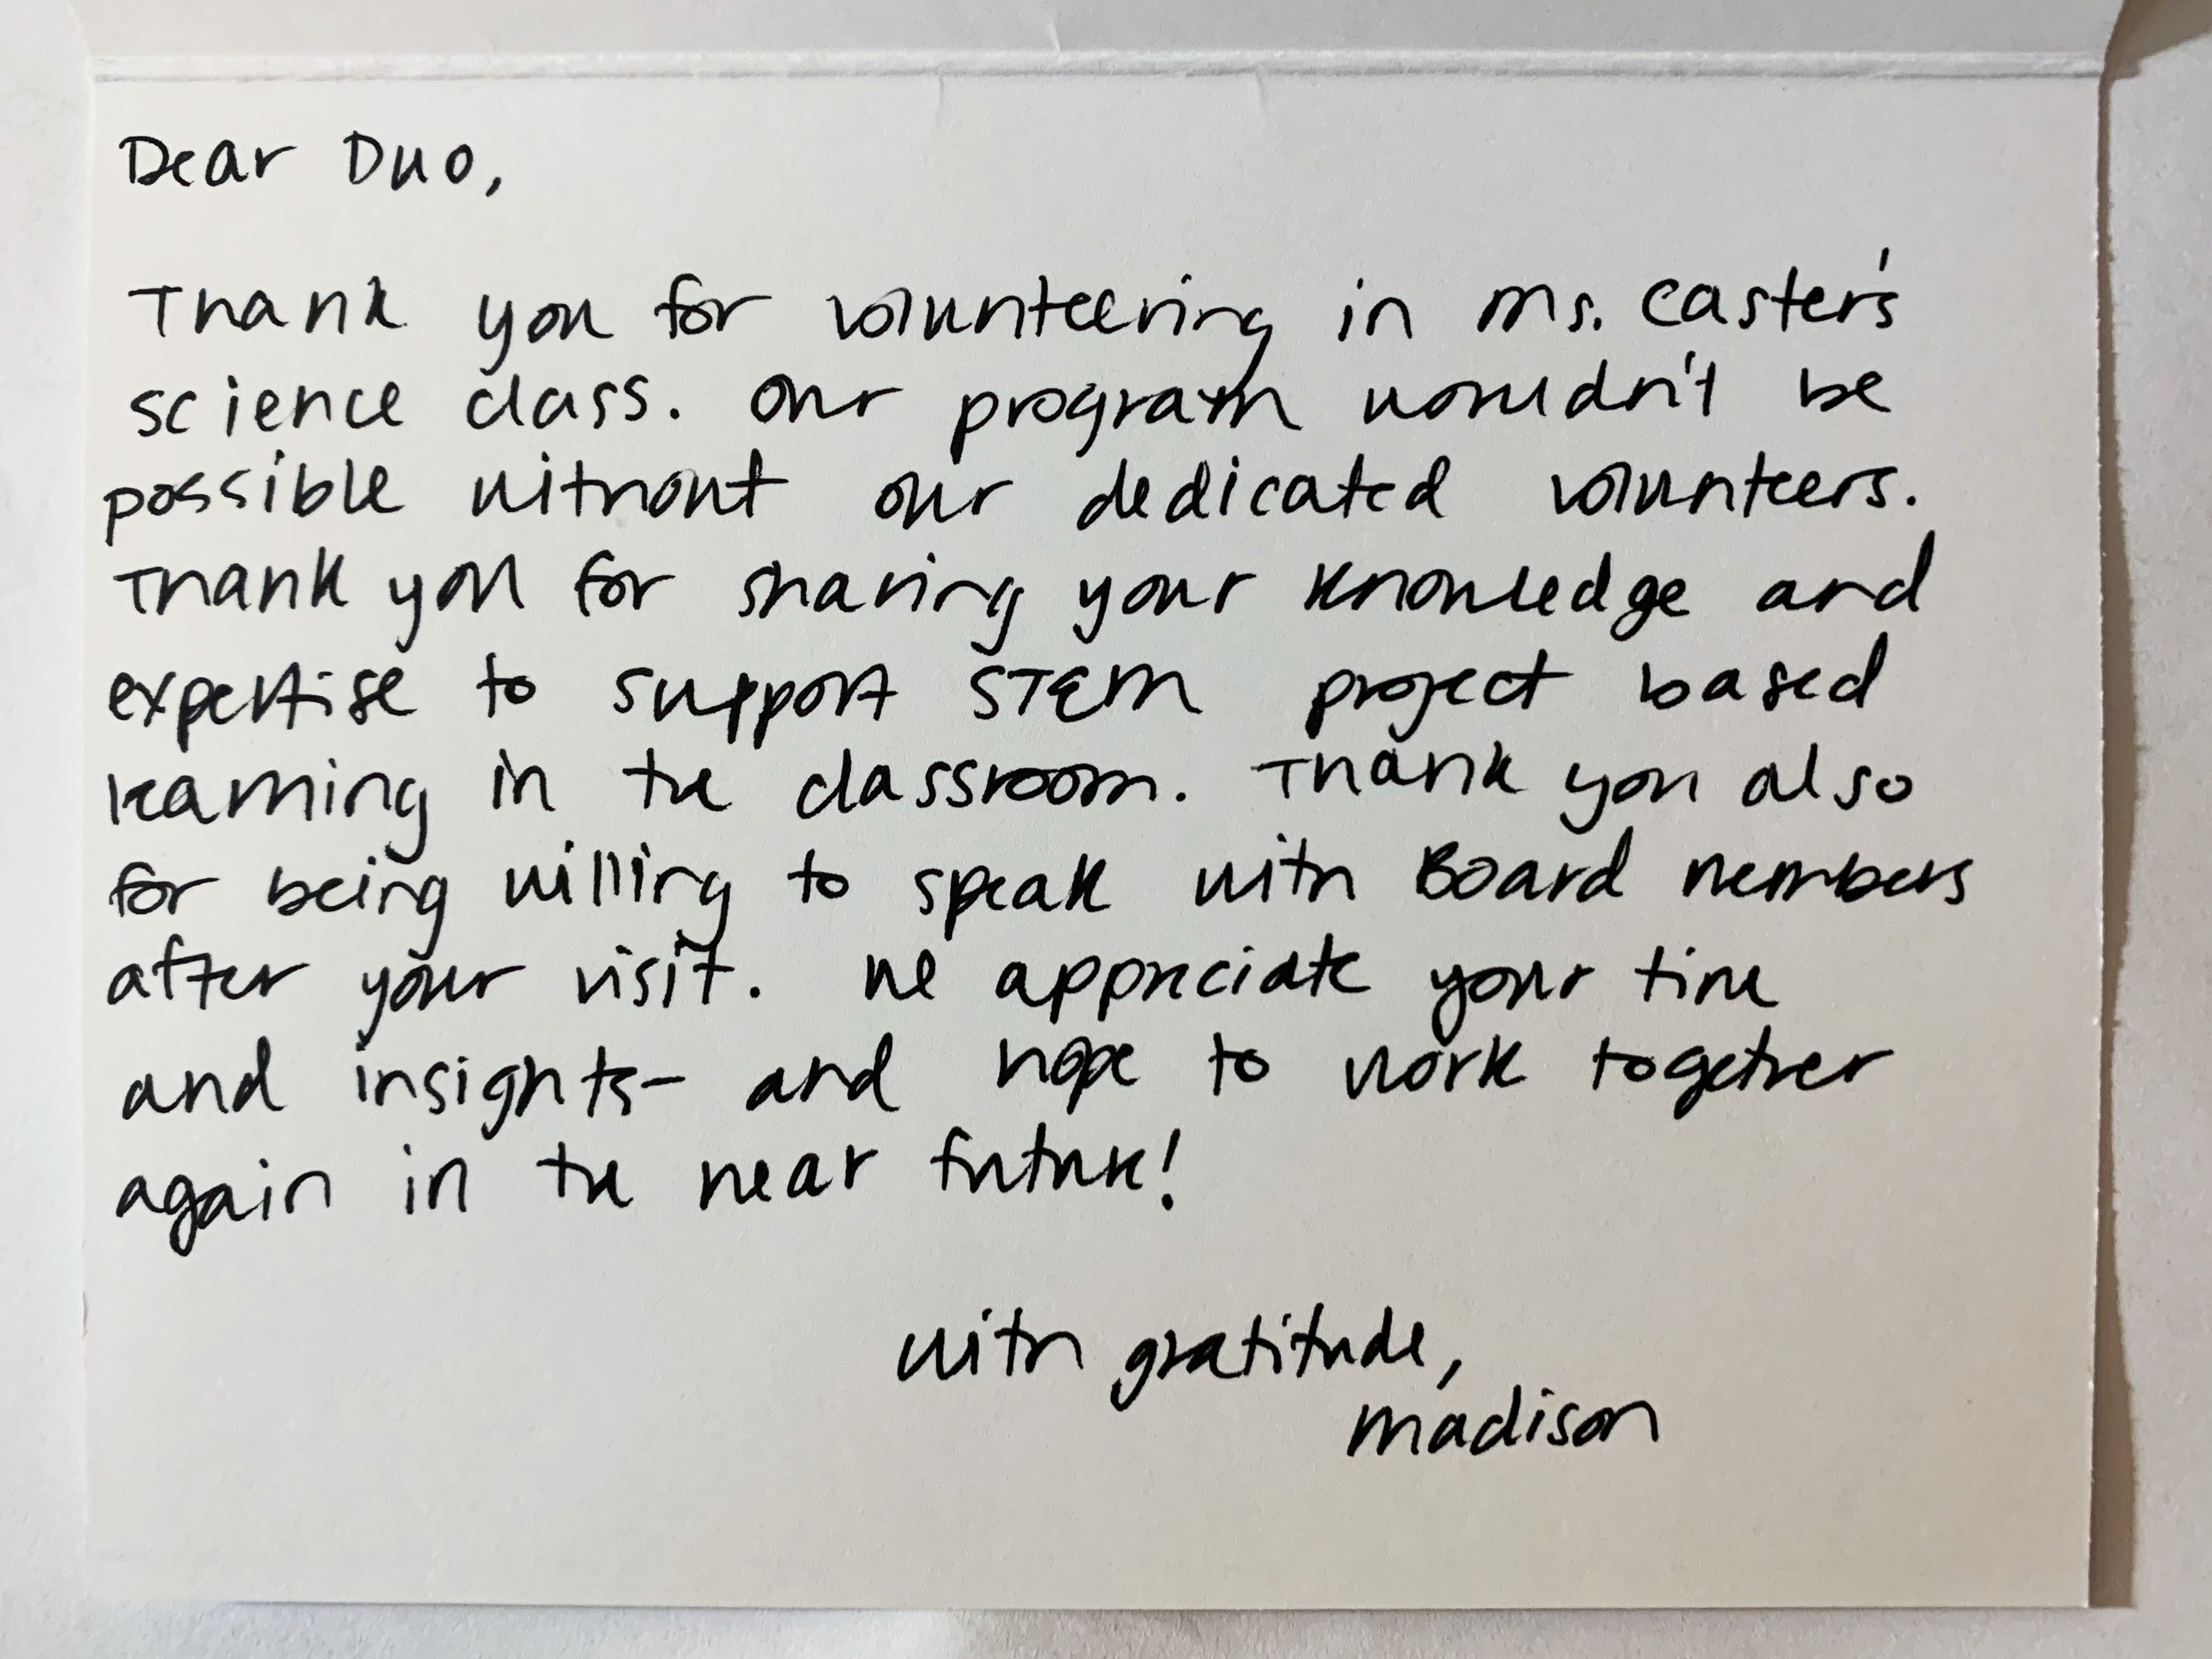 Dear Duo,
Thank you for volunteering in Ms. Caster's
science class. Our program wouldn't be
possible without our dedicated volunteers.
Thank you for sharing your knowledge and
expertise to support STEM project based
learning in the classroom. Thank you also
for being willing to speak with Board members
after your visit. We appreciate your time
and insights- and hope to work together
again in the near future!
With gratitude,
Madison